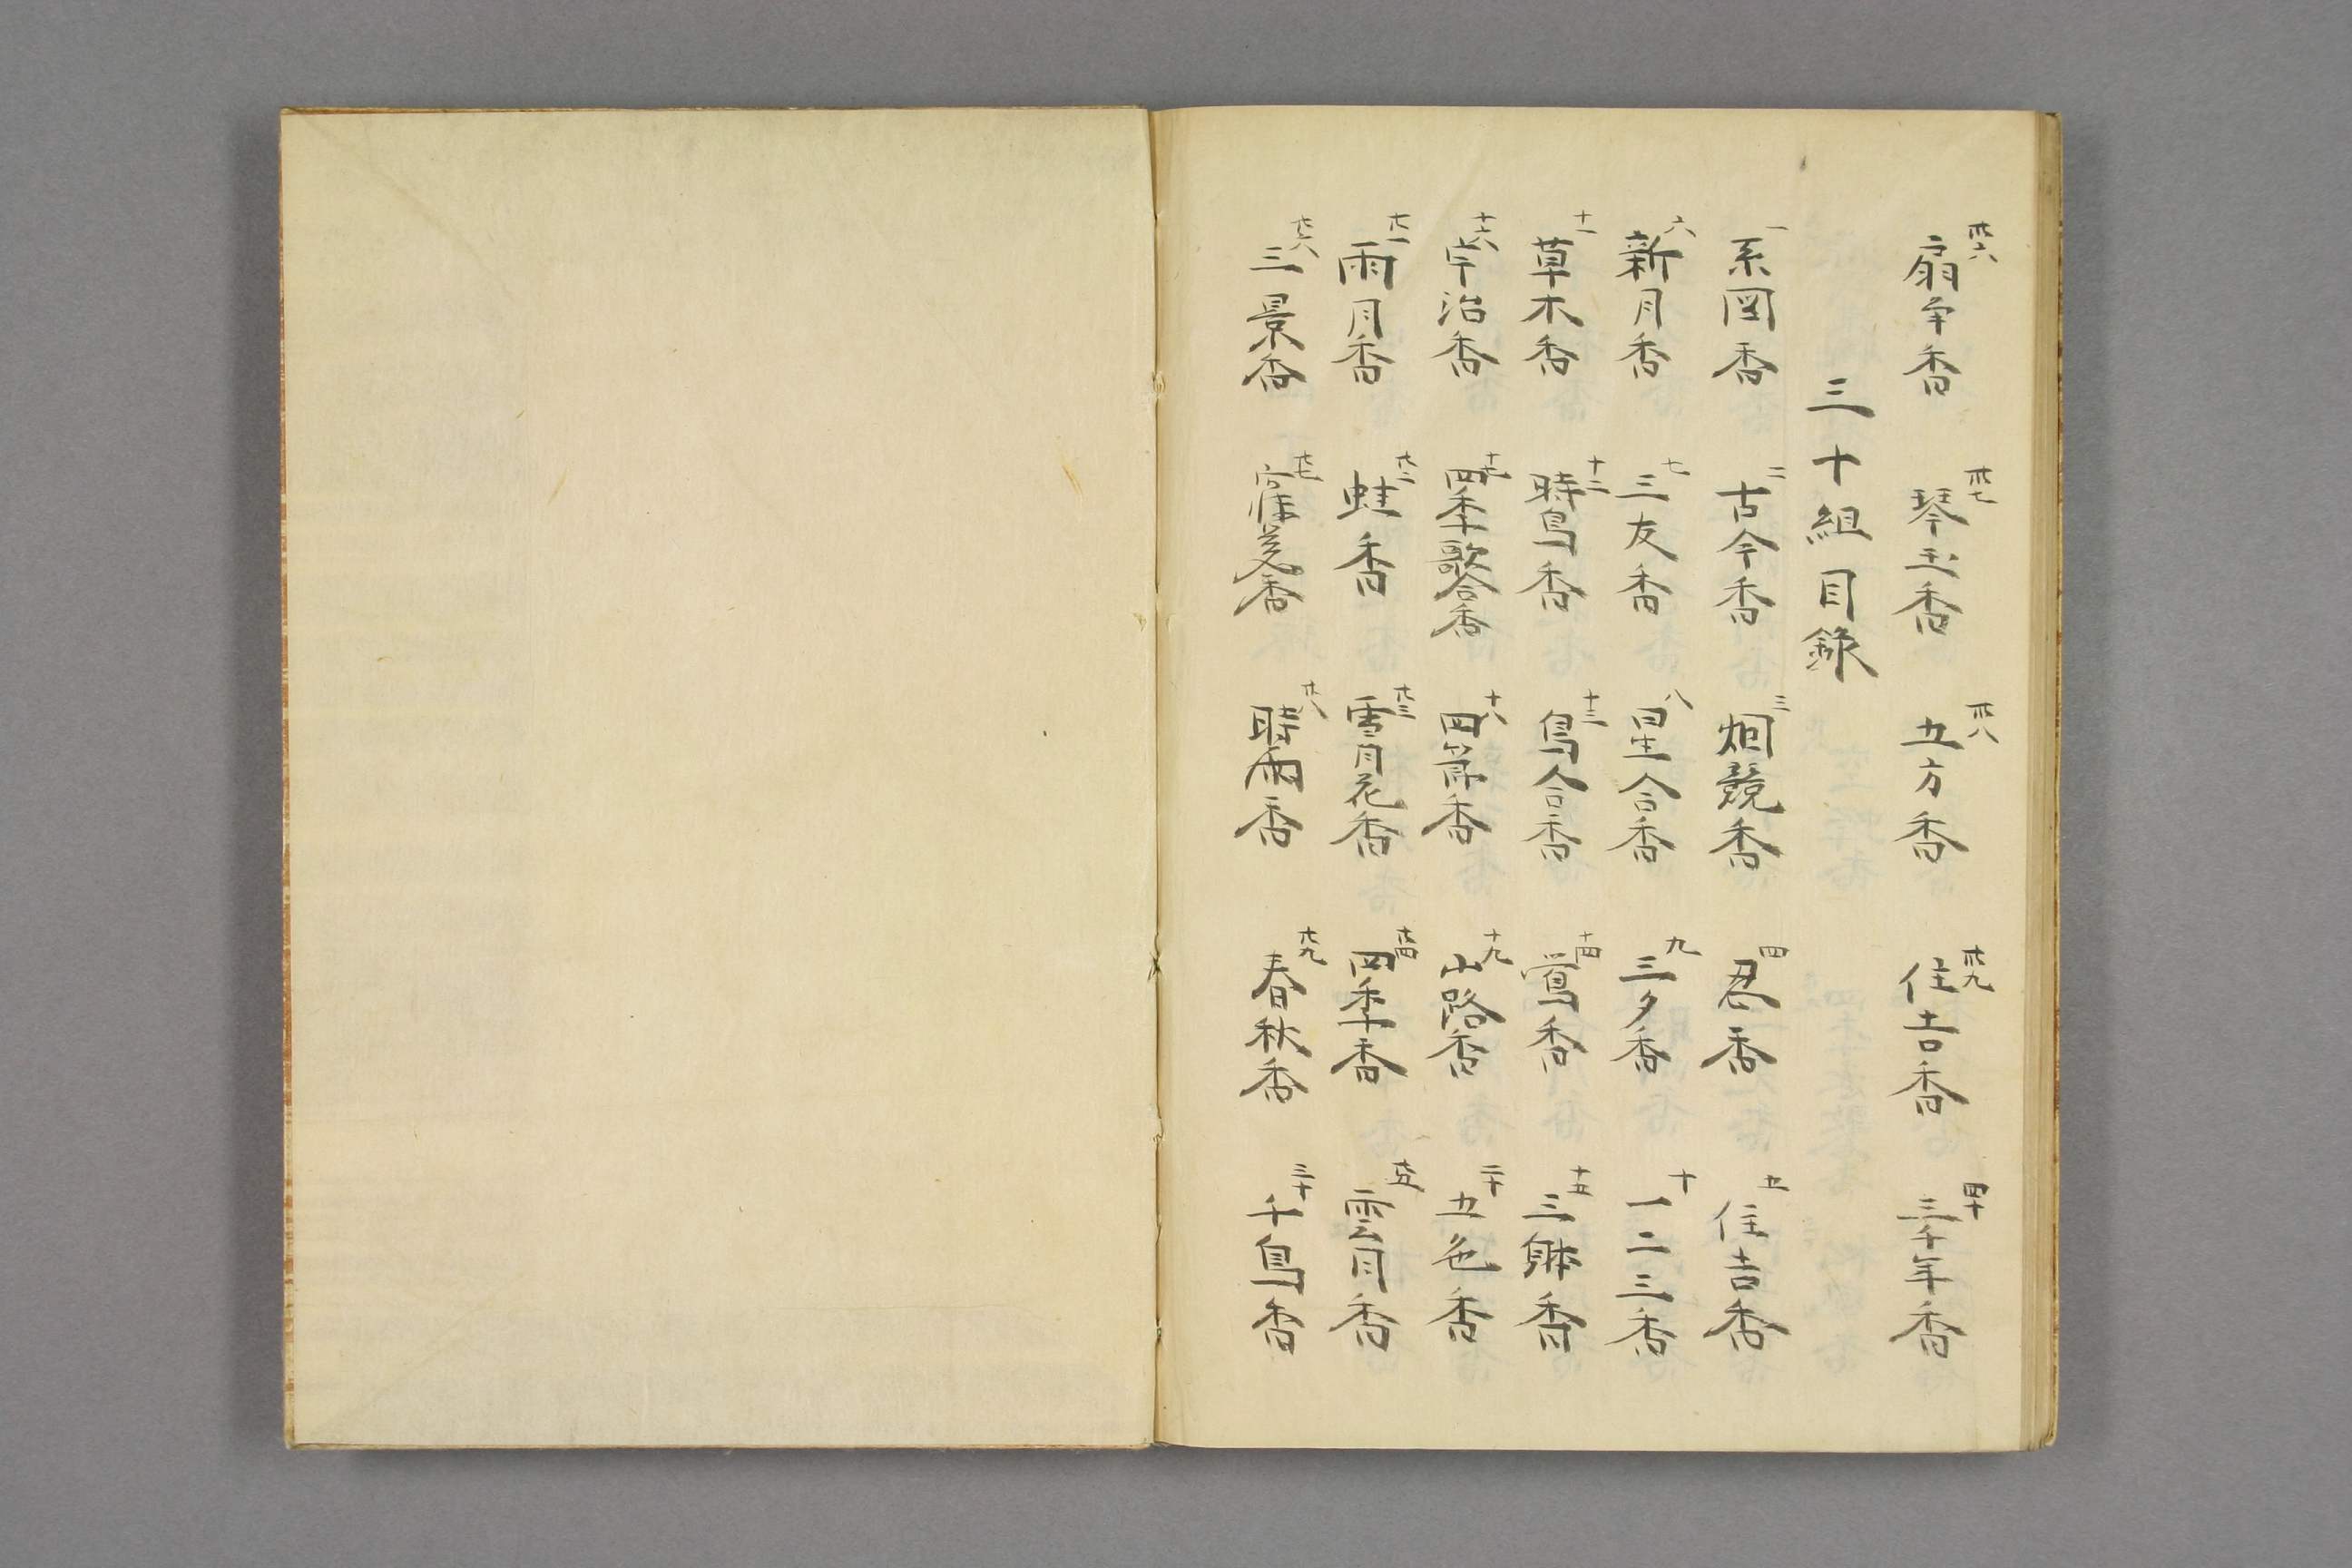 卅六 扇争香 卅七 琴玉香 卅八 五方香 卅九 住吉香 四十 三千年香
三十組目録
一 系図香 二 古今香 三 烟競香 四 忍香 五 住吉香
六 新月香 七 三友香 八 星合香 九 三夕香 十 一二三香
十一 草木香 十二 時鳥香 十三 鳥合香 十四 鶯香 十五 三躰香
十六 宇治香 十七 四季歌合香 十八 四節香 十九 山路香 二十 五色香
廿一 雨月香 廿二 蛙香 廿三 雪月花香 廿四 四季香 廿五 雲月香
廿六 三景香 廿七 寤寐香 廿八 時雨香 廿九 春秋香 三十 千鳥香